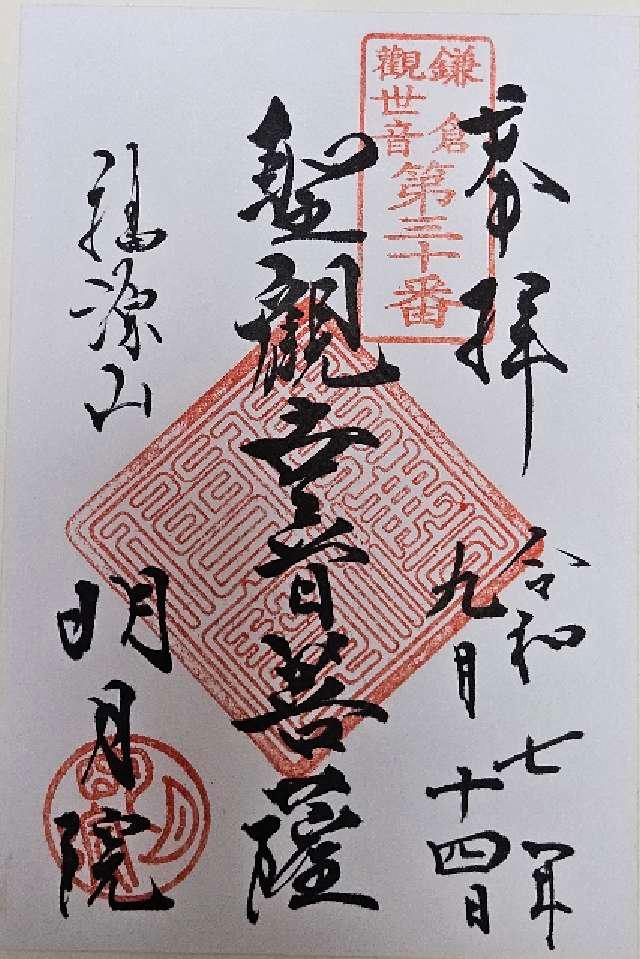 奉拝
鎌倉
觀世音
第三十番
令和七年
九月十四日
聖觀世音菩薩
福源山
明月院